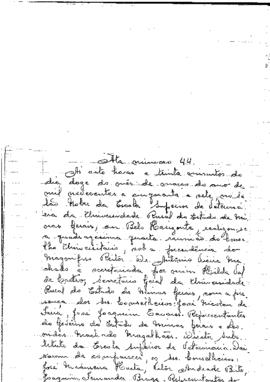 Ata número 44.
Às oito horas e trinta minutos do
dia doze do mês de março do ano de
mil novecentos e cinquenta e sete, no Sa-
lão Nobre da Escola Superior de Veteriná-
ria da Universidade Rural do Estado de Mi-
nas Gerais, em Belo Horizonte, realizou-se
a quadragésima quarta reunião do Conse-
lho Universitário sob a presidência do
Magnífico Reitor Dr. Antônio
chado e secretariada por mim
de Castro, Secretário Geral da Universidade
Rural do Estado de Minas Gerais, com a pre-
sença dos Srs. Conselheiros: José
José Joaquim Tavares, Representantes
do Govêrno do Estado de Minas Gerais e
Machado Magalhães, Diretor Subs-
tituto da Escola Superior de Veterinária. Dei-
xaram de comparecer, os Srs. Conselheiros:
José Costa, Andrade Brito,
Joaquim Fernandes Braga, Representantes do